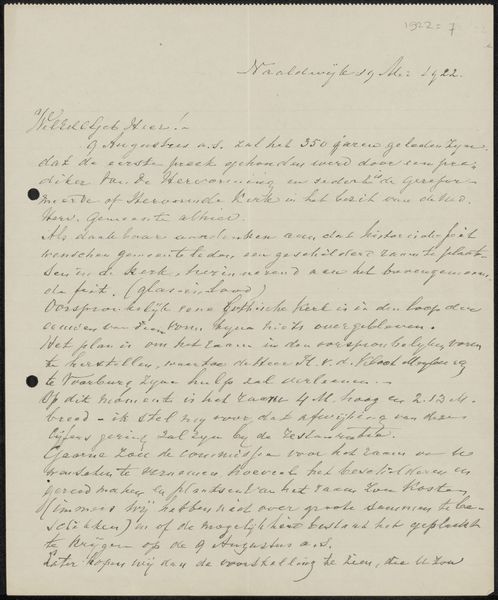 1922=7
Naaldwijk 19 Mei 1922.
WelEdelGeb Heer!
9 Augustus a.s. zal het 350 jaren geleden zyn
dat de eerste preek gehouden werd door een pre-
diker van de Hervorming en sedert is de Gerefor-
meerde of Hervormde Kerk in het bezit van de Ned.
Herv. Gemeente alhier.
Als dankbaar aandenken aan dat historische feit
wenschen gemeenteleden, een geschilderd raam te plaat-
sen in de Kerk, herinnerend aan het bovengemeen-
de feit. (glas in lood)
Oorspronkelijk eene Gothische Kerk is in den loop der
eeuwen van dien vorm byna niets overgebleven.
Het plan is om het raam in den oorspronkelyken vorm
te herstellen, waartoe de Heer H. v. d. Kloot Meyburg
te Voorburg zyne hulp zal verleenen.
Op dit moment is het raam 4 M. hoog en 2.12 M.
breed - ik stel my voor dat afwyking van deze
cyfers gering zal zyn by de restauratie.
Gaarne zou de commissie voor het raam van U
wenschen te vernemen hoeveel het beschilderen en
gereed maken en plaatsen van het raam zou kosten
(immers wy hebben niet over groote sommen te be-
schikken) en of de mogelykheid bestaat het geplaatst
te krygen op de 9 Augustus a.s.
Later hopen wy dan de voorstelling te zien, die U zou